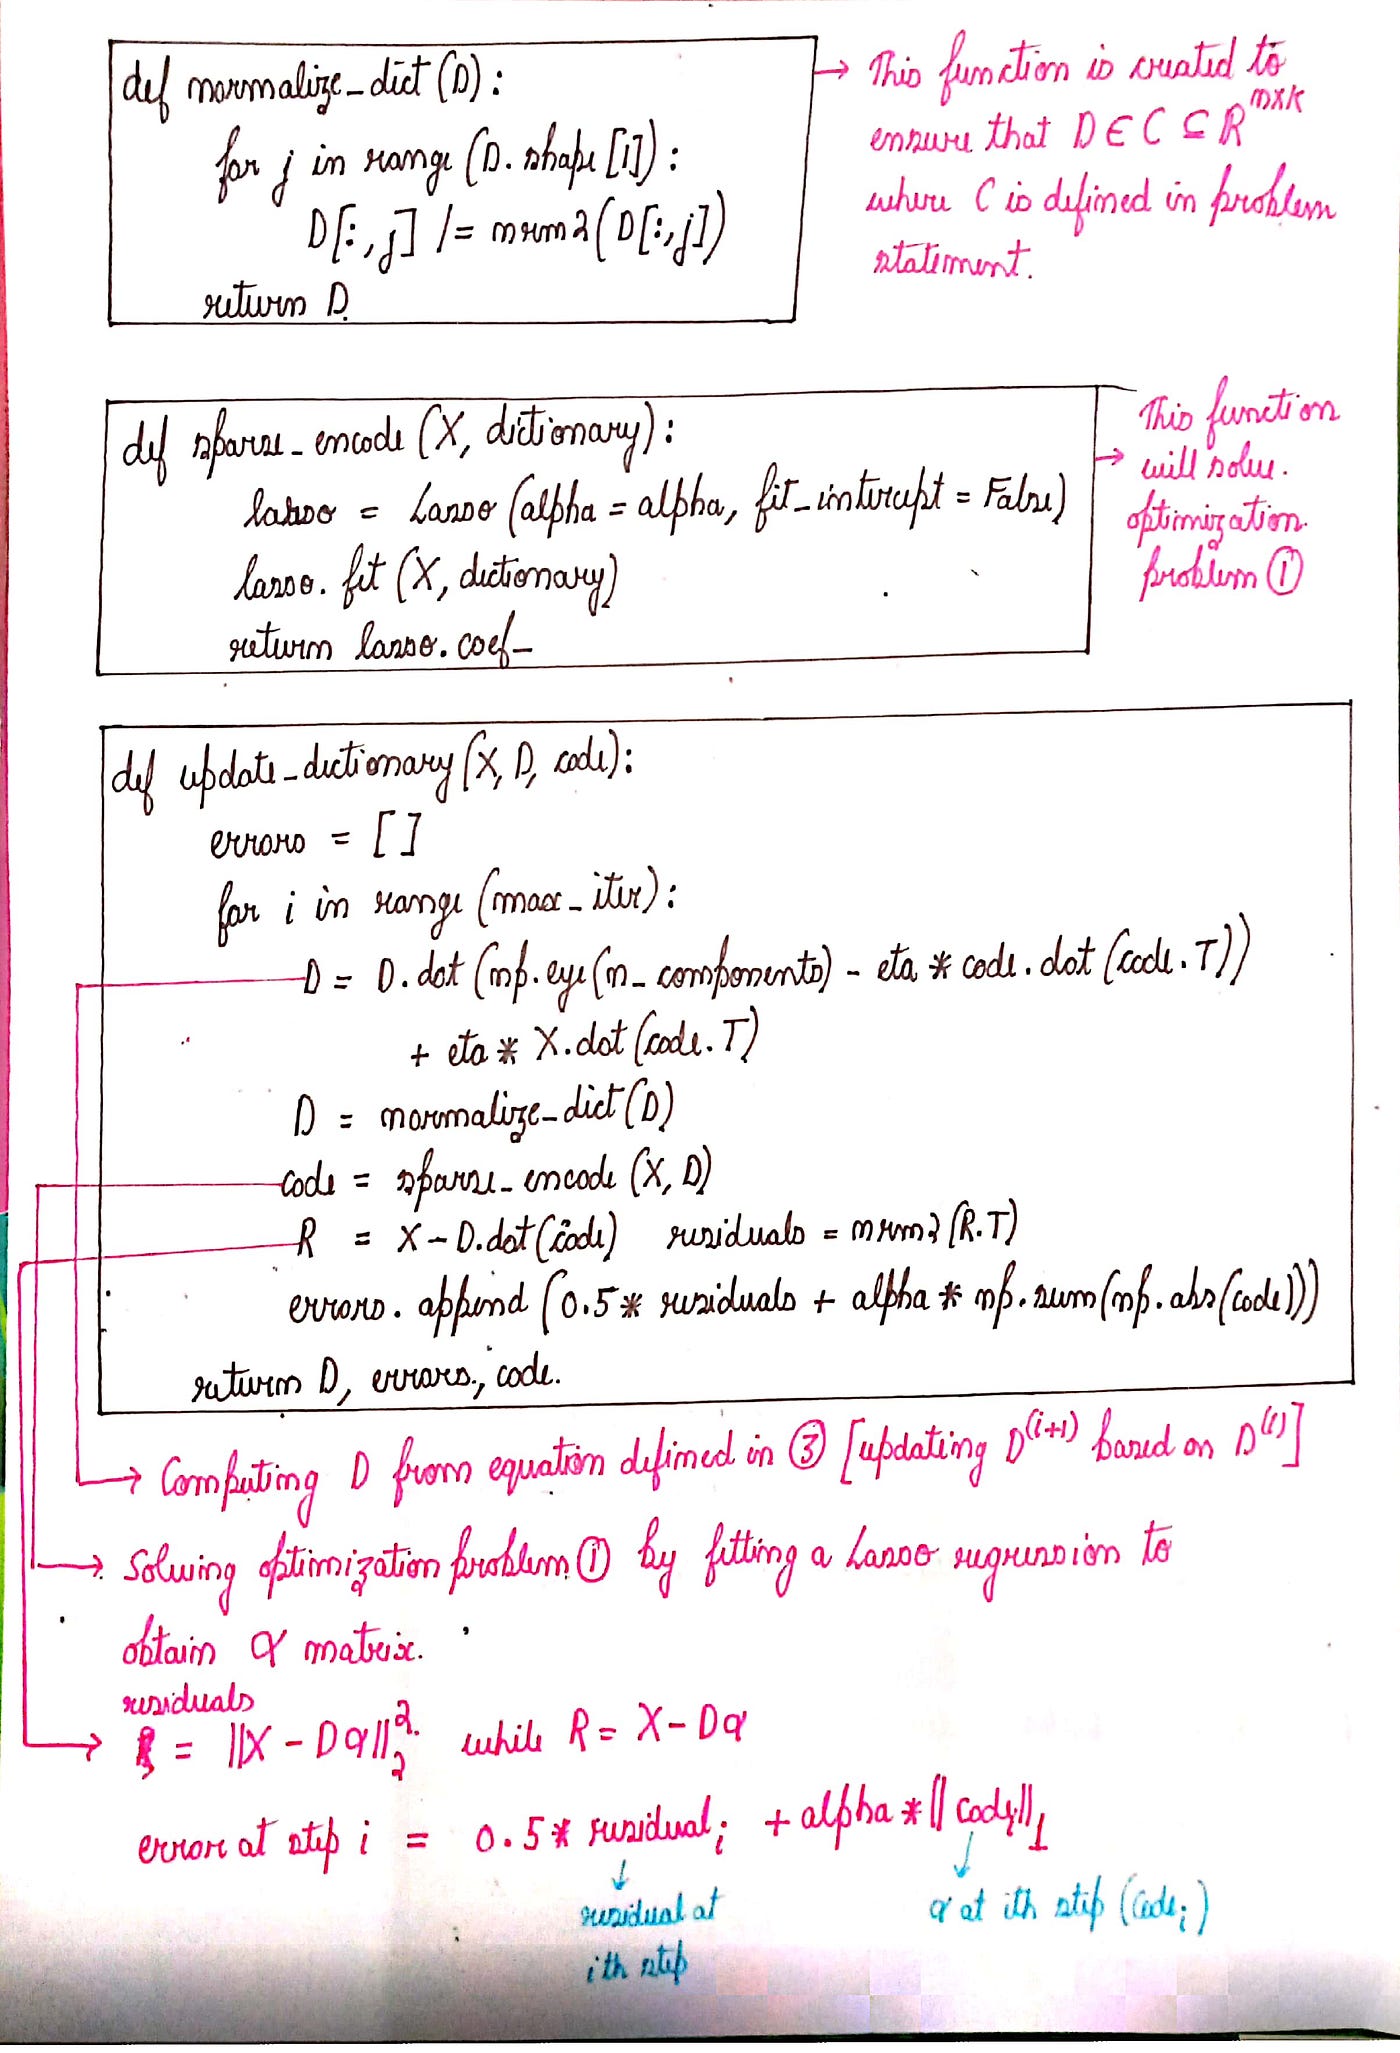 def normalize_dict(D):
for j in range (D.shape[1]):
D[:,j] /= nrm2(D[:,j])
return D
→ This function is created to
ensure that D ∈ C ⊆ R^mxk
where C is defined in problem
statement.
def sparse_encode (X, dictionary):
lasso = Lasso (alpha = alpha, fit_intercept = False)
lasso.fit (X, dictionary)
return lasso.coef_
→ This function
will solve.
optimization
problem ①
def update_dictionary(X, D, code):
errors = []
for i in range (max_iter):
D = D.dot (np.eye(n_components) - eta * code.dot (code.T))
+ eta * X.dot (code.T)
D = normalize_dict(D)
code = sparse_encode (X, D)
R = X - D.dot(code) residuals = nrm2(R.T)
errors.append (0.5 * residuals + alpha * np.sum(np.abs(code)))
return D, errors, code.
→ Computing D from equation defined in ③ [updating D^(i+1) based on D^(i)]
→ Solving optimization problem ① by fitting a Lasso regression to
obtain α matrix.
residuals
= ||X - Dα||₂². while R = X - Dα
error at step i = 0.5 * residualᵢ + alpha * || codeᵢ||₁
↓ ↓
residual at α at ith step (Codeᵢ)
ith step